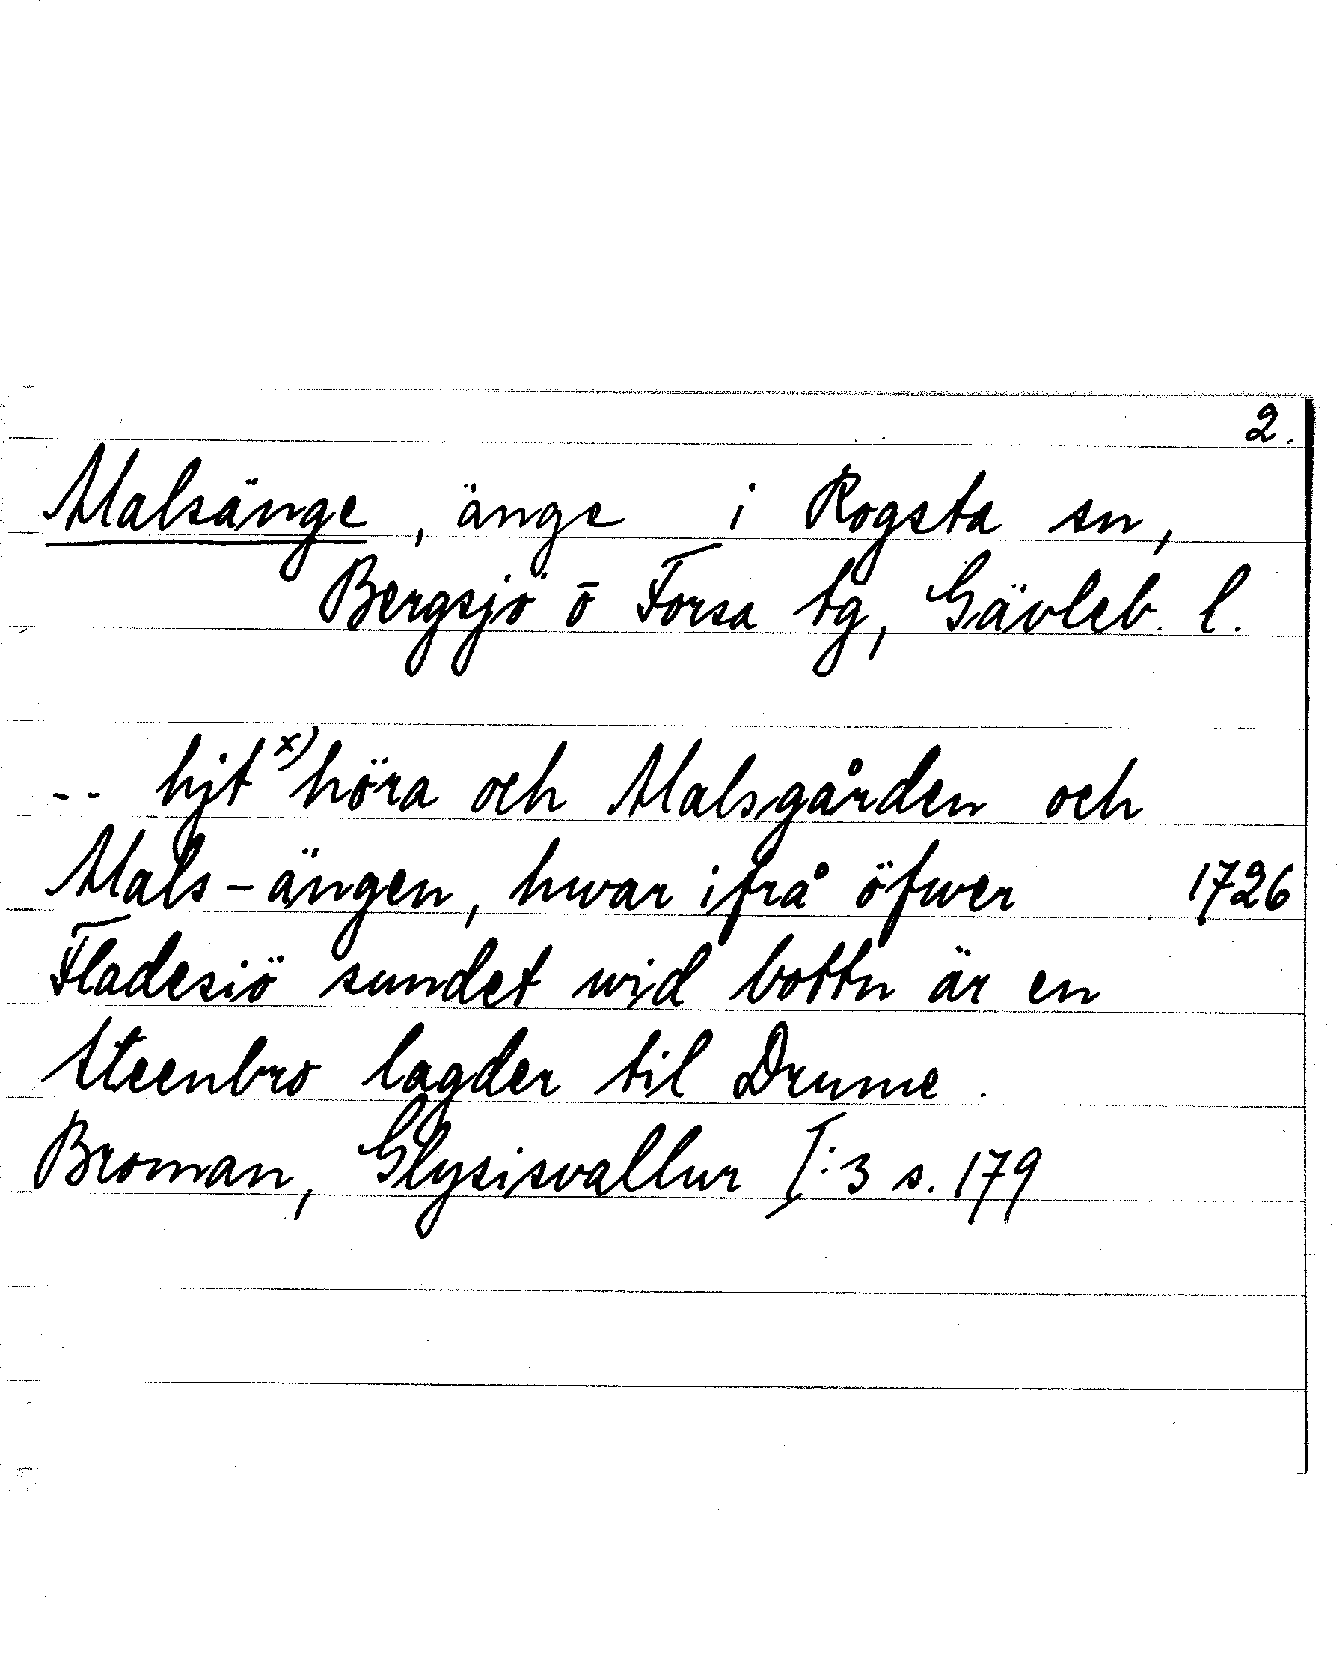 2.
Malsänge, änge i Rogsta sn,
Bergsjö o Forsa tg, Gävleb. l.
-- hjt x) höra och Malsgården och
Mals-ängen, hwar ifrå öfwer 1726
Fladesiö sundet wid bottn är en
Steenbro lagder til Drume.
Broman, Glysisvallur I:3 s. 179